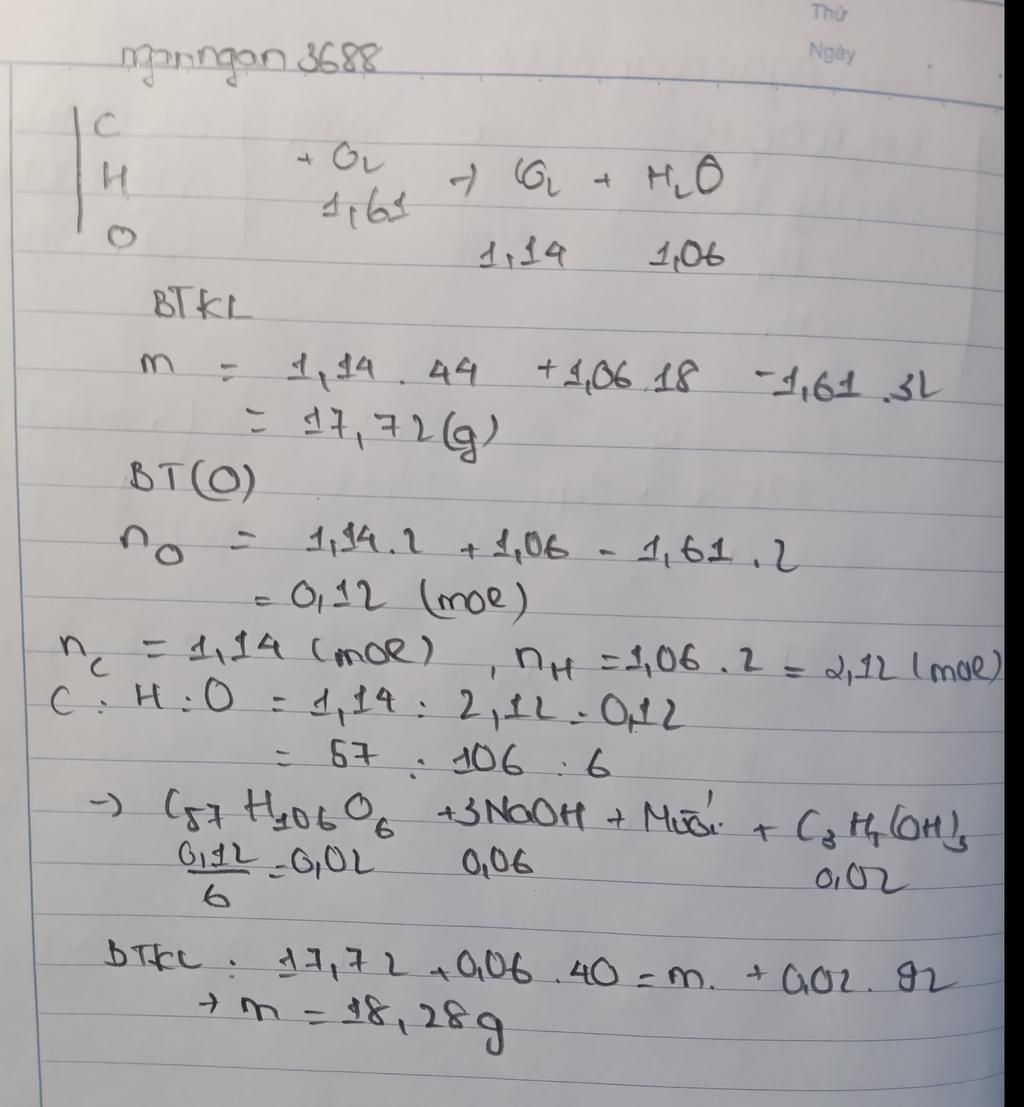 Thứ
Ngày
nganngan3688
C
H + O2 → CO2 + H2O
O 1,61 1,14 1,06
BTKL
m = 1,14 . 44 + 1,06 18 - 1,61 . 32
= 17,72 (g)
BT(O)
nO = 1,14.2 + 1,06 - 1,61 . 2
= 0,12 (mol)
nC = 1,14 (mol) , nH = 1,06 . 2 = 2,12 (mol)
C : H : O = 1,14 : 2,12 : 0,12
= 57 : 106 : 6
→ C57H106O6 + 3NaOH + Muối + C3H5(OH)3
0,12/6 = 0,02 0,06 0,02
BTKL : 17,72 + 0,06 . 40 = m. + 0,02 . 92
→ m = 18,28g